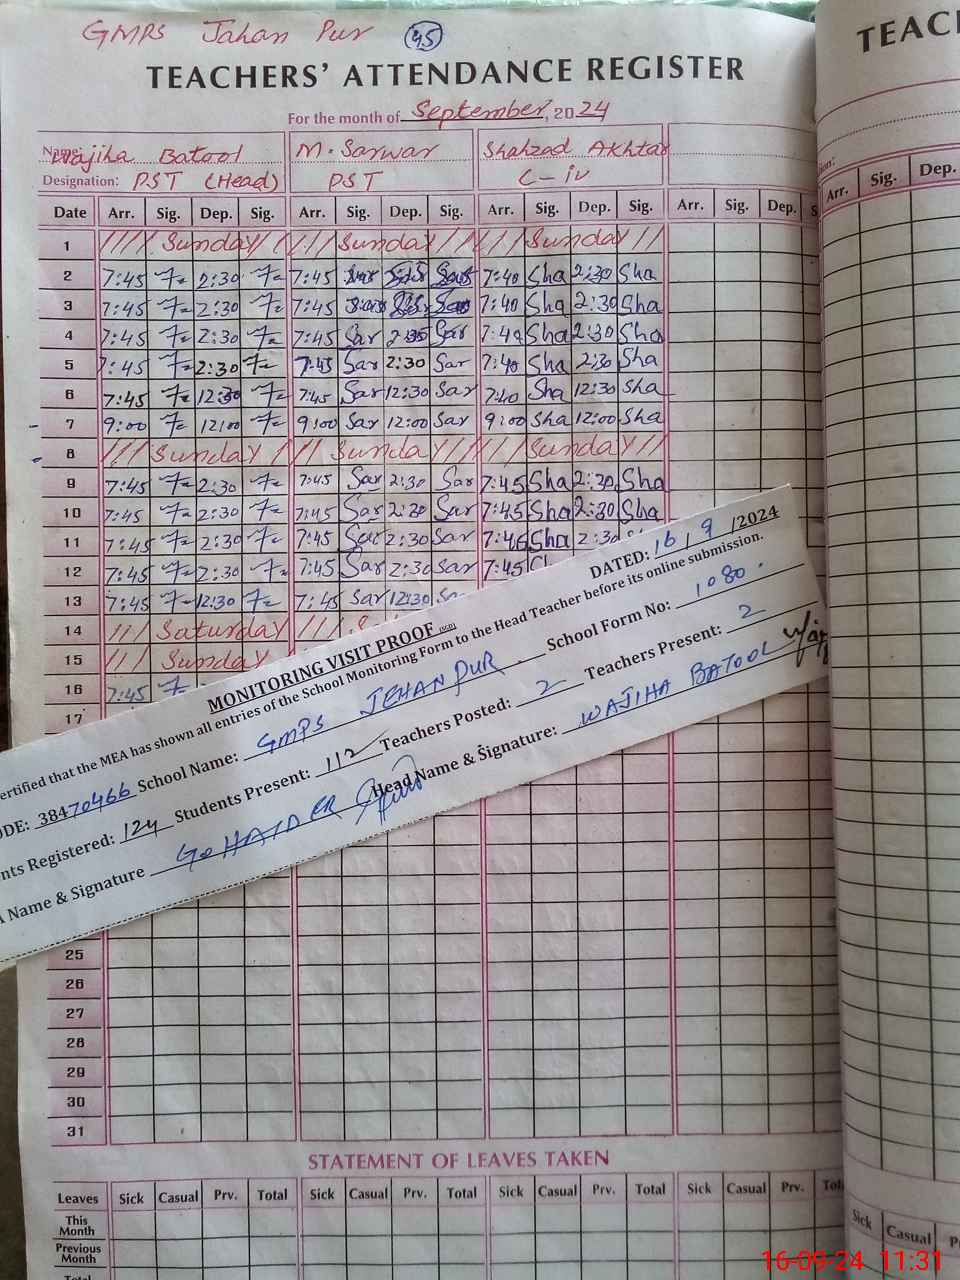 GMPS Jahan Pur 45
TEACHERS' ATTENDANCE REGISTER
TEAC
For the month of September, 2024
Name: Wajiha Batool M. Sarwar Shahzad Akhtar
Designation: PST (Head) PST C-iv
Date Arr. Sig. Dep. Sig. Arr. Sig. Dep. Sig. Arr. Sig. Dep. Sig. Arr. Sig. Dep. S Arr. Sig. Dep.
1 Sunday Sunday Sunday
2 7:45 2:30 7:45 7:40 Sha 2:30 Sha
3 7:45 2:30 7:45 7:40 Sha 2:30 Sha
4 7:45 2:30 7:45 Sar Sar 7:40 Sha 2:30 Sha
5 7:45 2:30 7:45 Sar 2:30 Sar 7:40 Sha 2:30 Sha
6 7:45 12:30 7:45 Sar 12:30 Sar 7:40 Sha 12:30 Sha
7 9:00 12:00 9:00 Sar 12:00 Sar 9:00 Sha 12:00 Sha
8 Sunday Sunday Sunday
9 7:45 2:30 7:45 Sar 2:30 Sar 7:45 Sha 2:30 Sha
10 7:45 2:30 7:45 Sar 2:30 Sar 7:45 Sha 2:30 Sha
11 7:45 2:30 7:45 Sar 2:30 Sar 7:45 Sha 2:30
12 7:45 2:30 7:45 Sar 2:30 Sar 7:45
13 7:45 12:30 7:45 Sar 12:30
14 Saturday
15 Sunday
16 7:45
17
MONITORING VISIT PROOF DATED: 16/9/2024
ertified that the MEA has shown all entries of the School Monitoring Form to the Head Teacher before its online submission.
ODE: 38470466 School Name: GMPS JEHAN PUR School Form No: 1080.
nts Registered: 124 Students Present: 112 Teachers Posted: 2 Teachers Present: 2
A Name & Signature HAIDER Head Name & Signature: WAJIHA BATOOL
25
26
27
28
29
30
31
STATEMENT OF LEAVES TAKEN
Leaves Sick Casual Prv. Total Sick Casual Prv. Total Sick Casual Prv. Total Sick Casual Prv. Tot Sick Casual P
This Month
Previous Month
Total
16-09-24 11:31